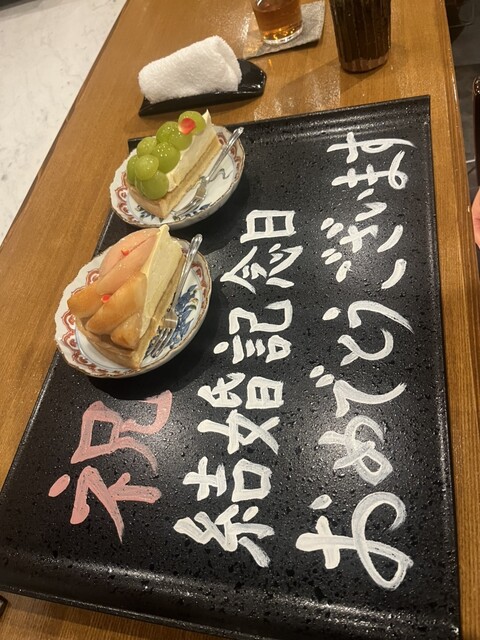 祝
結婚記念日
おめでとうございます